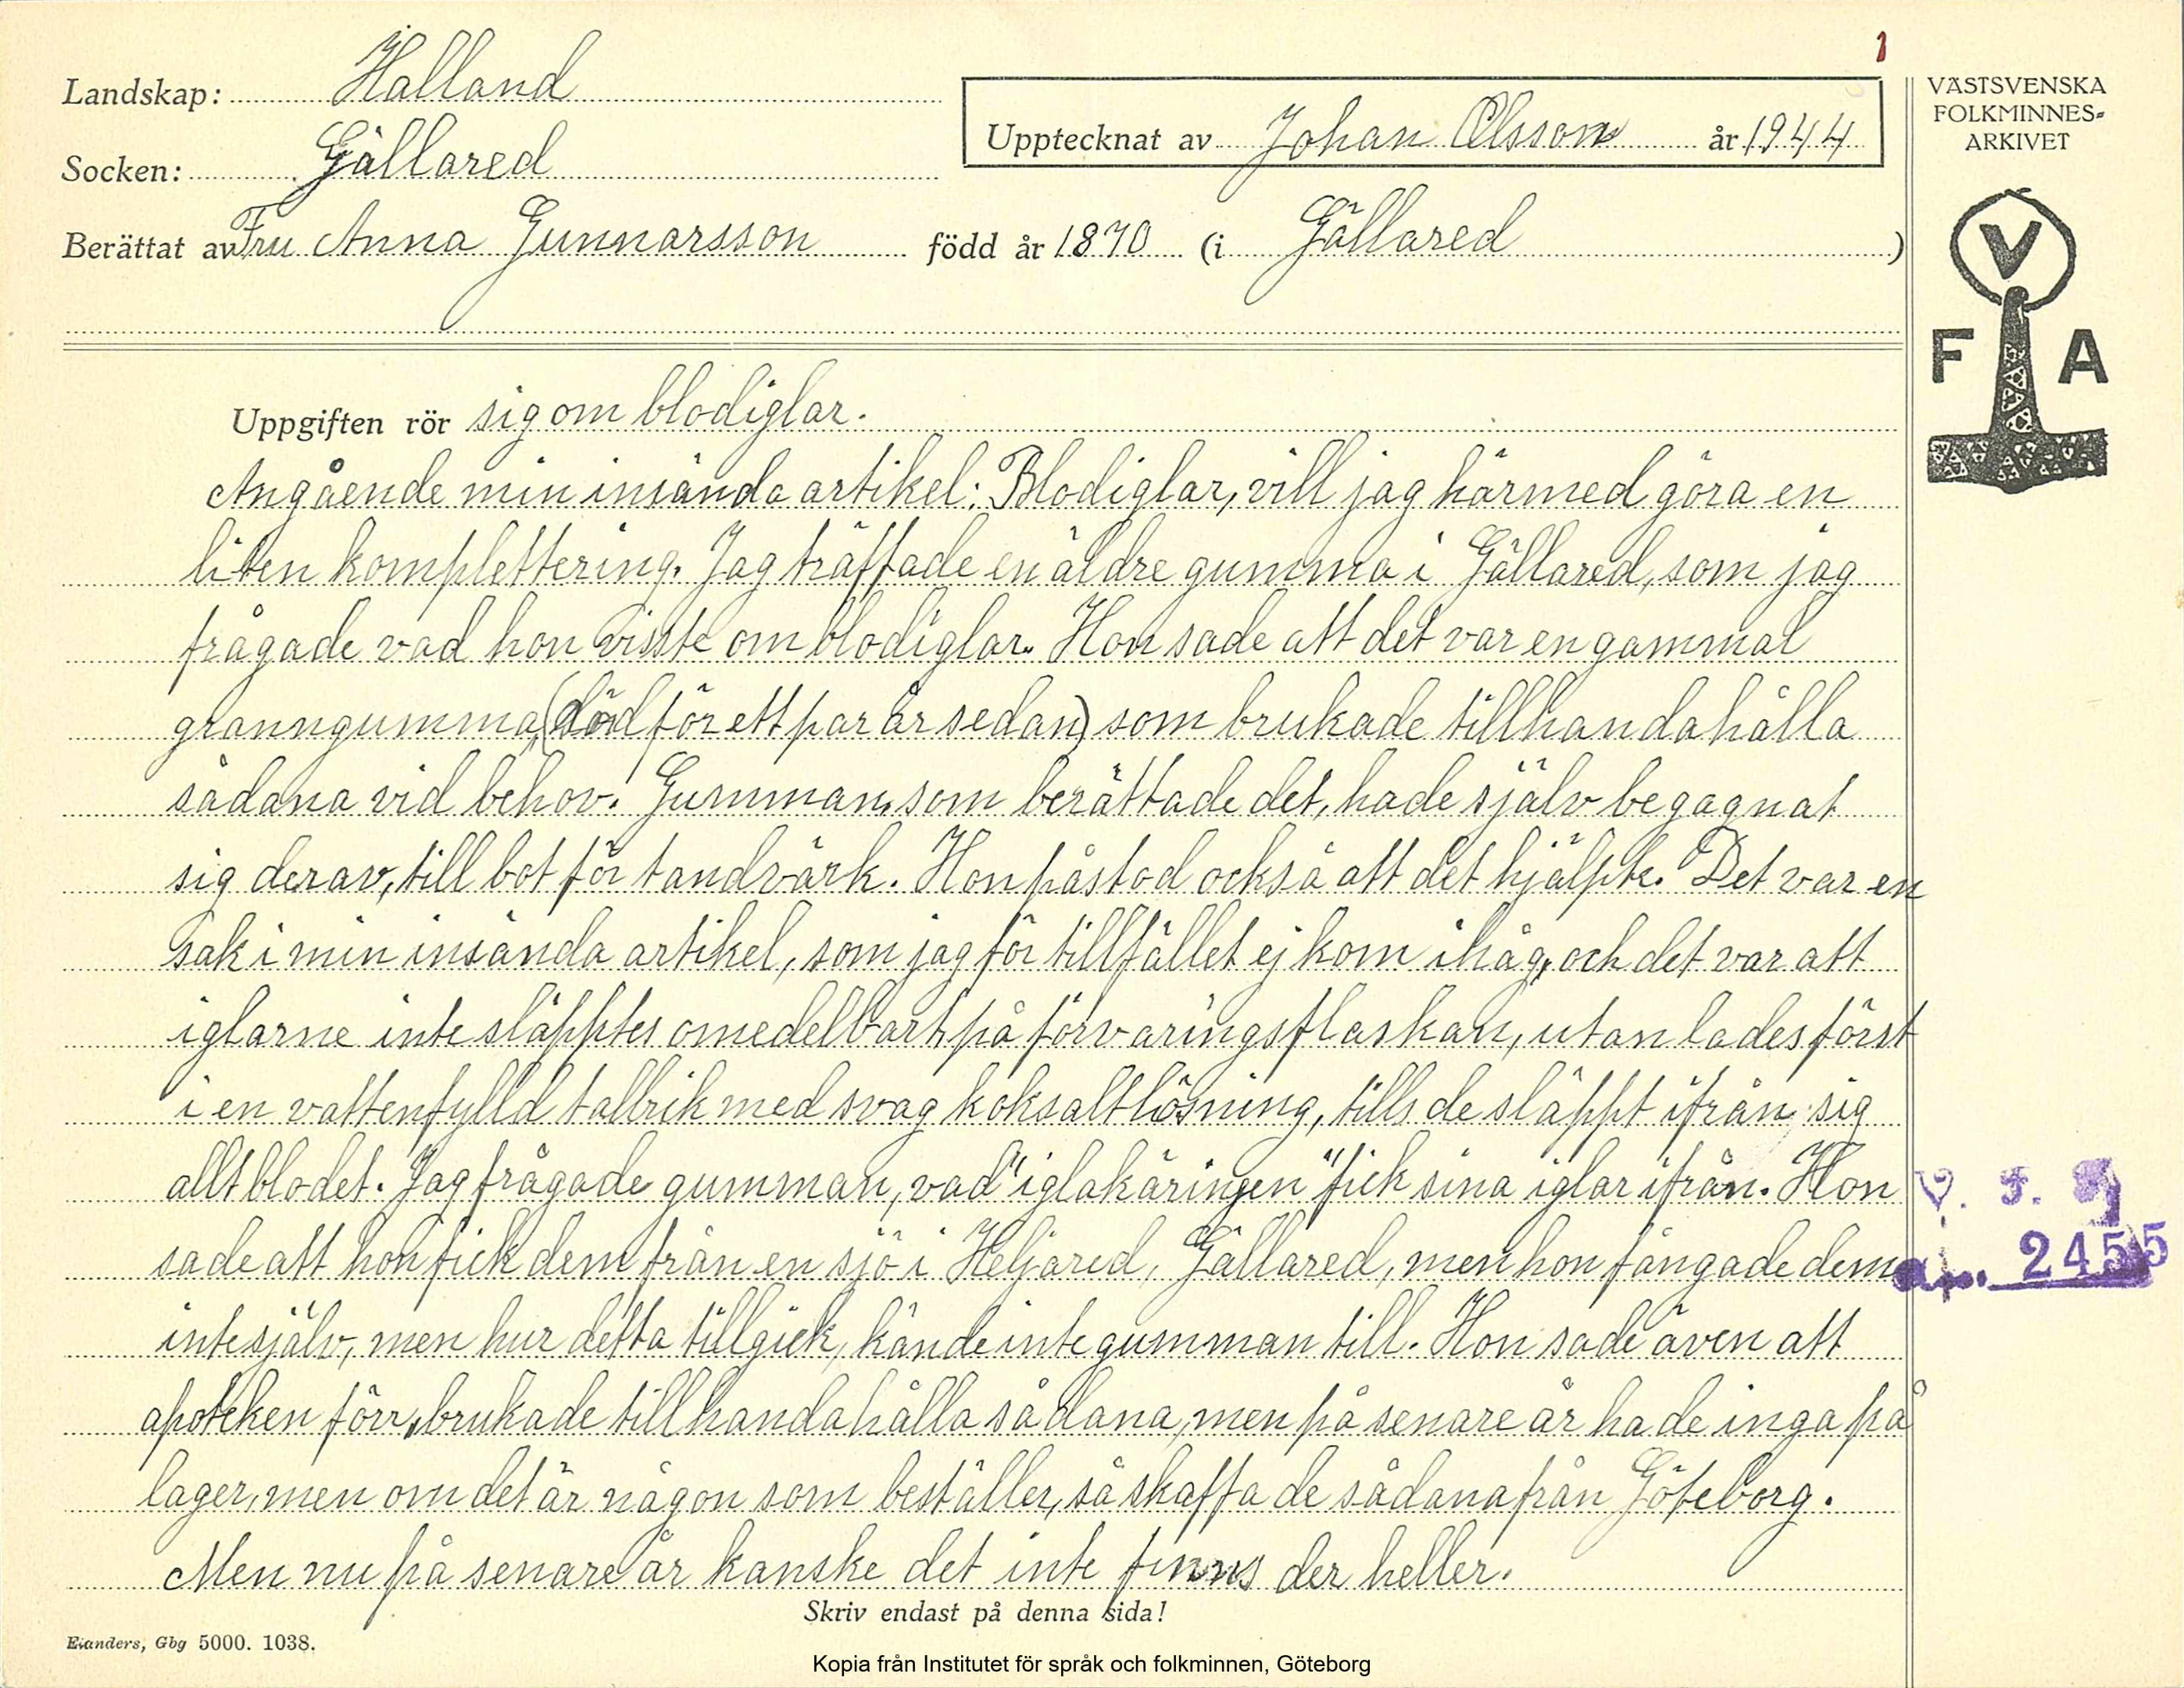 1
Landskap: Halland
Socken: Gällared
Upptecknat av Johan Olsson år 1944
Berättat av Fru Anna Gunnarsson född år 1870 (i Gällared)
VÄSTSVENSKA
FOLKMINNES-
ARKIVET
V
F A
Uppgiften rör sig om blodiglar.
Angående min insända artikel: Blodiglar, vill jag härmed göra en
liten komplettering. Jag träffade en äldre gumma i Gällared, som jag
frågade vad hon visste om blodiglar. Hon sade att det var en gammal
granngumma, (död för ett par år sedan) som brukade tillhandahålla
sådana vid behov. Gumman, som berättade det, hade själv begagnat
sig derav, till bot för tandvärk. Hon påstod också att det hjälpte. Det var en
sak i min insända artikel, som jag för tillfället ej kom ihåg, och det var att
iglarne inte släpptes omedelbart på förvaringsflaskan, utan lades först
i en vattenfylld tallrik med svag koksaltlösning, tills de släppt ifrån sig
allt blodet. Jag frågade gumman, vad "iglakäringen" fick sina iglar ifrån. Hon
sade att hon fick dem från en sjö i Heljared, Gällared, men hon fångade dem
inte själv, men hur detta tillgick, kände inte gumman till. Hon sade även att
apoteken förr, brukade tillhandahålla sådana, men på senare år ha de inga på
lager, men om det är någon som beställer, så skaffa de sådana från Göteborg.
Men nu på senare år kanske det inte finns der heller.
V. F. A
2455
Skriv endast på denna sida!
Elanders, Gbg 5000. 1038.
Kopia från Institutet för språk och folkminnen, Göteborg